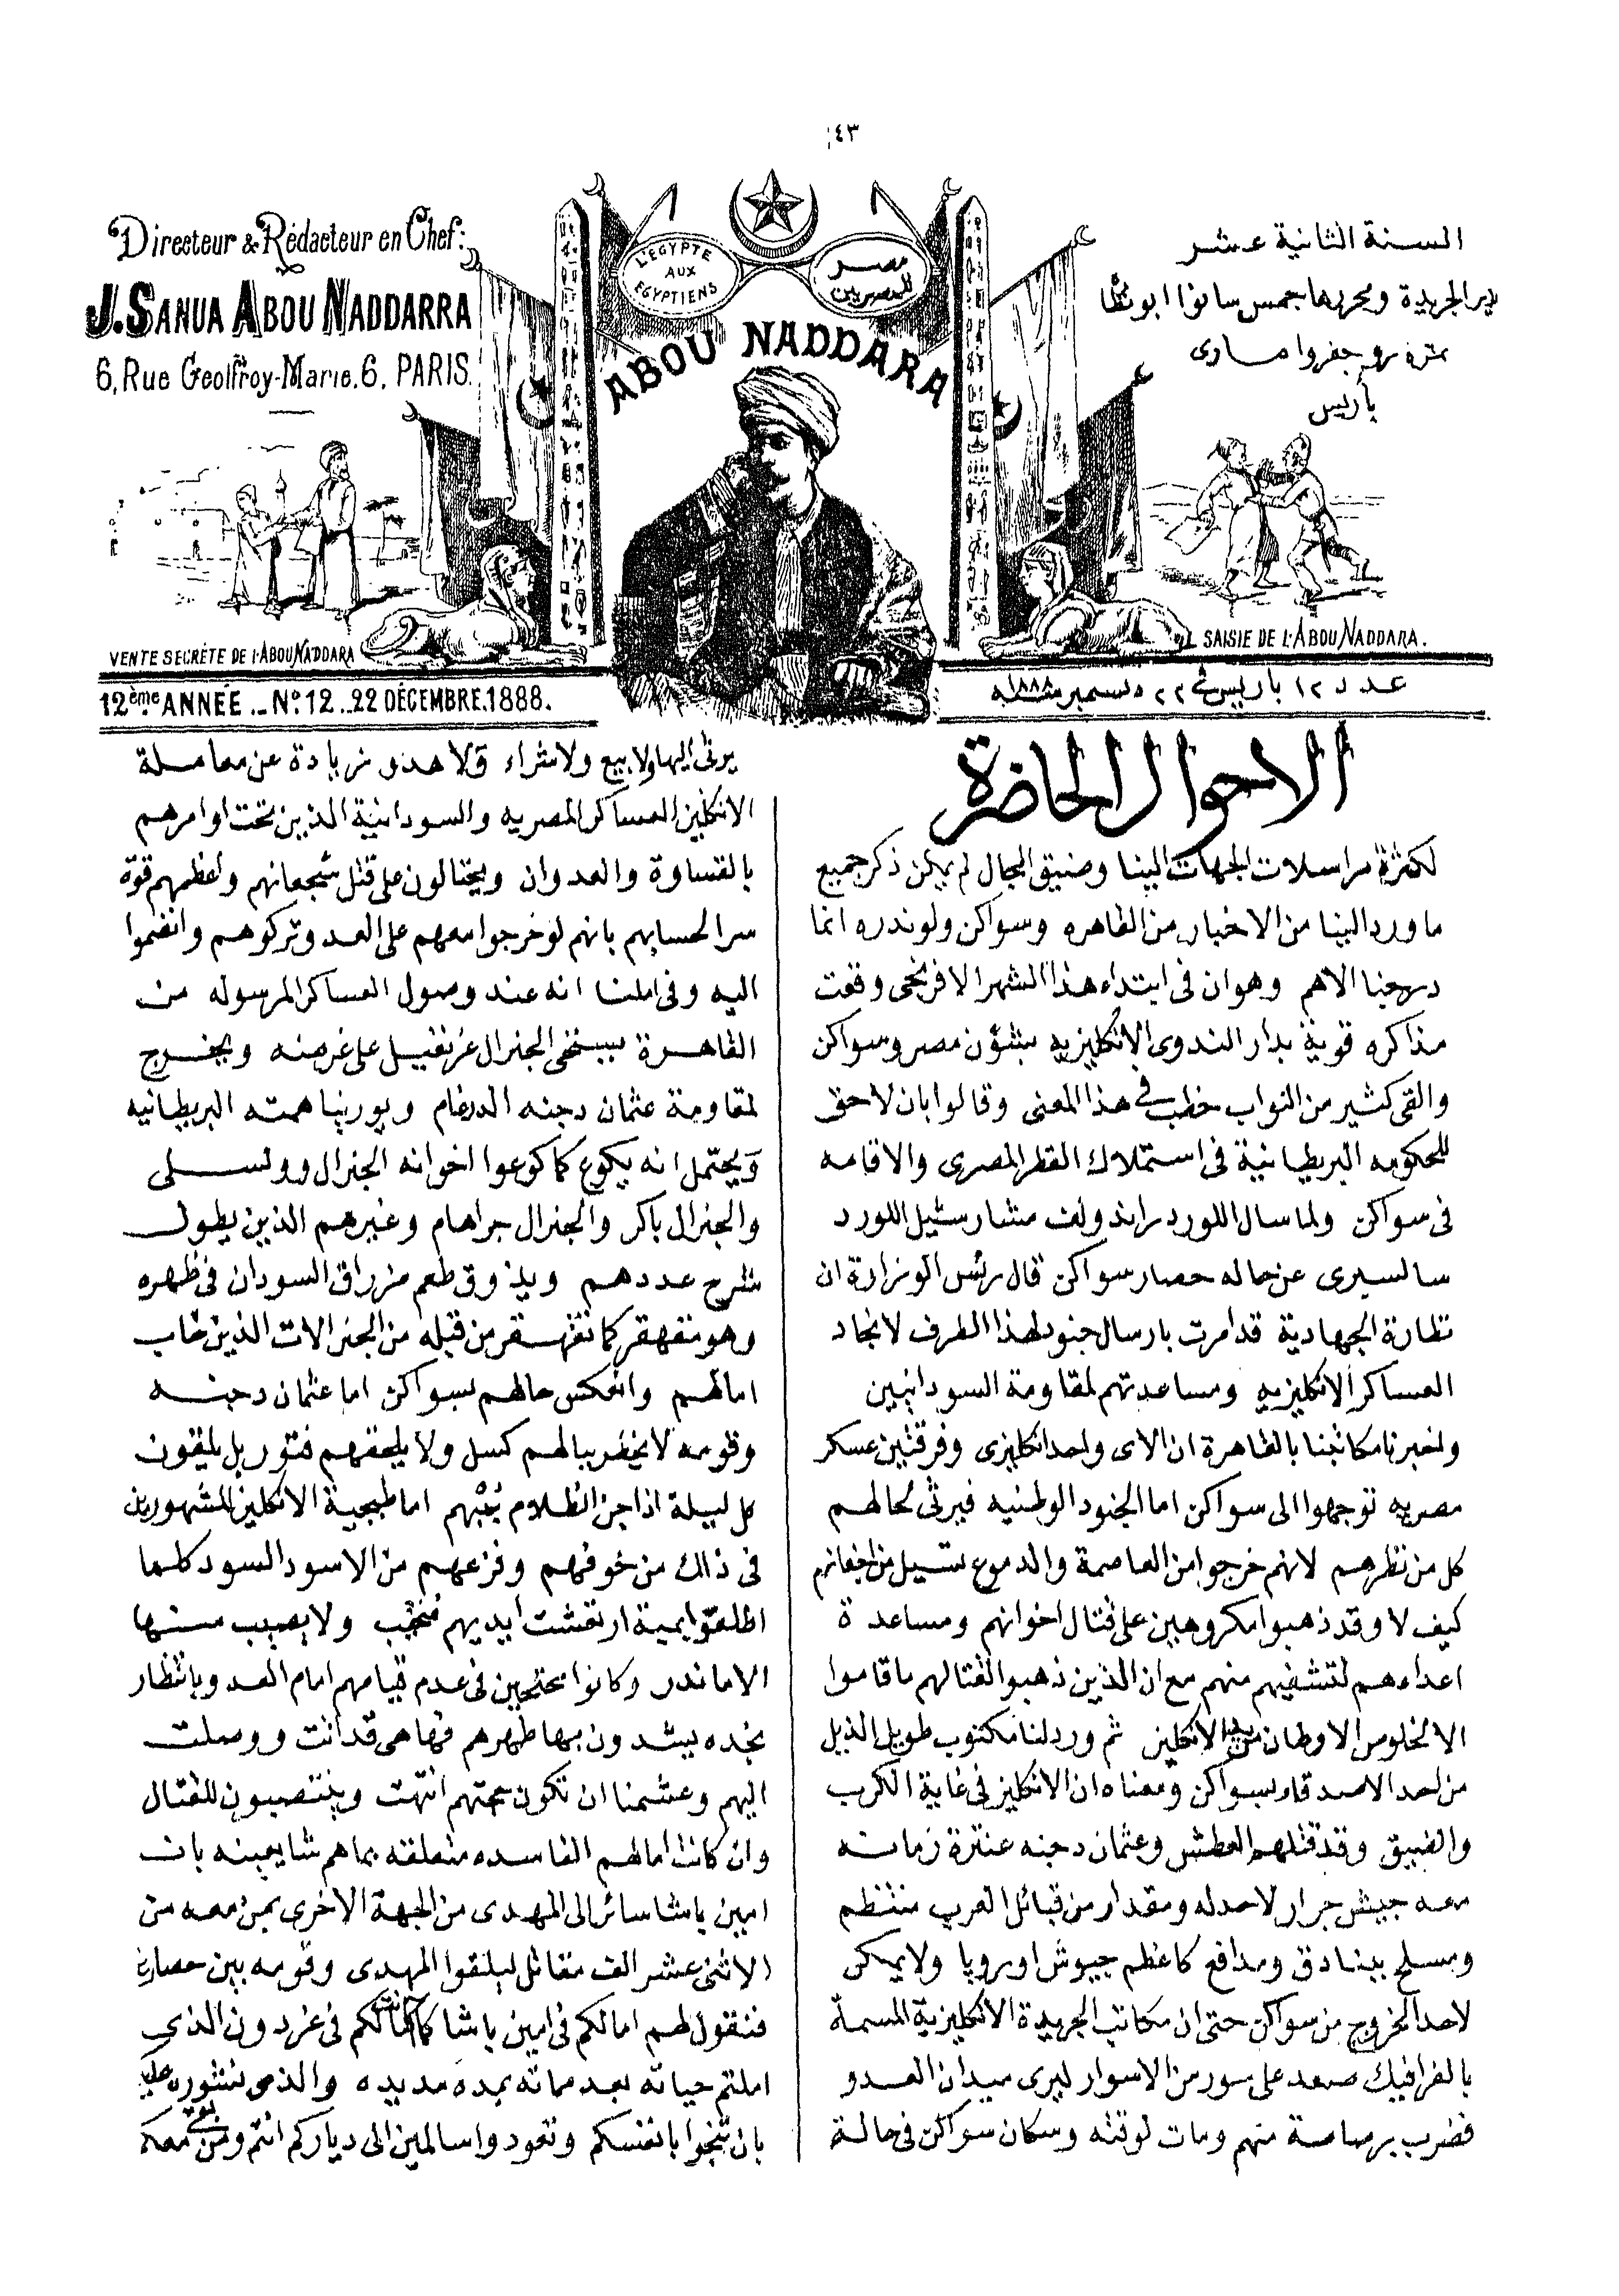 ١٤٣
Directeur & Rédacteur en Chef:
J. SANUA ABOU NADDARRA
6, Rue Geoffroy-Marie, 6, PARIS.
L'EGYPTE
AUX
EGYPTIENS
مصر
للمصريين
ABOU NADDARA
السنة الثانية عشر
مدير الجريدة ومحررها جمس سانوا ابو نظا
نمره ٦ جفروا مارى
باريس
VENTE SECRÈTE DE L'ABOU NADDARA
SAISIE DE L'ABOU NADDARA.
12ème ANNÉE _ No. 12 .. 22 DÉCEMBRE. 1888.
عدد ١٢ باريس فى ٢٢ دسمبر سنة ١٨٨٨
الاحوال الحاضرة
لكثرة مراسلات الجهات الينا وضيق المجال لم يمكن ذكر جميع
ما ورد الينا من الاخبار من القاهره وسواكن ولوندره انما
درجنا الاهم وهو ان فى ابتداء هذا الشهر الافرنجى وقعت
مذاكره قوية بدار الندوى الانكليزيه بشؤن مصر وسواكن
والقى كثير من النواب خطب فى هذا المعنى وقالوا بان لا حق
للحكومه البريطانية فى استملاك القطر المصرى والاقامه
فى سواكن ولما سال اللورد راندولف مشارسثيل اللورد
سالسبرى عن حاله حصار سواكن قال رئس الوزارة ان
نظارة الجهادية قد امرت بارسال جنود لهذا الطرف لانجاد
العساكر الانكليزيه ومساعدتهم لمقاومة السودانيين
واخبرنا مكاتبنا بالقاهرة ان الاى واحد انكليزى وفرقتين عسكر
مصريه توجهوا الى سواكن اما الجنود الوطنيه فيرثى لحالهم
كل من نظرهم لانهم خرجوا من العاصمة والدموع تسيل من اجفانهم
كيف لا وقد ذهبوا مكروهين على قتال اخوانهم ومساعدة
اعداءهم لتشفيهم منهم مع ان الذين ذهبوا لقتالهم ما قاموا
الا لخلوص الاوطان من يد الانكليز ثم ورد لنا مكتوب طويل الذيل
من احد الاصدقاء بسواكن ومعناه ان الانكليز فى غاية الكرب
والضيق وقد قتلهم العطش وعثمان دجنه عنترة زمانه
معه جيش جرار لا حد له ومقدار من قبائل العرب منتظم
ومسلح ببنادق ومدافع كاعظم جيوش اوروپا ولا يمكن
لاحد الخروج من سواكن حتى ان مكاتب الجريدة الانكليزية المسماة
بالغرافيك صعد على سور من الاسوار ليرى ميدان العدو
فضرب برصاصة منهم ومات لوقته وسكان سواكن فى حالة
يرثى اليها ولا بيع ولا شراء ولا هدو زيادة عن معاملة
الانكليز العساكر المصريه والسودانية الذين تحت اوامرهم
بالقساوة والعدوان ويحتالون على قتل شجعانهم واعظمهم قوة
سرا لحسابهم بانهم لو خرجوا معهم على العدو تركوهم وانضموا
اليه وفى املنا انه عند وصول العساكر المرسوله من
القاهرة سينخى الجنرال غرنفيل على عرضه ويخرج
لمقاومة عثمان دجنه الدرغام ويورينا همته البريطانيه
ويحتمل انه يكوع كما كوعوا اخوانه الجنرال وولسلى
والجنرال باكر والجنرال جراهام وغيرهم الذين يطول
شرح عددهم ويذوق طعم مزراق السودان فى ظهره
وهو متقهقر كما تقهقر من قبله من الجنرالات الذين خاب
امالهم وانعكس حالهم بسواكن اما عثمان دجنه
وقومه لا يخطر ببالهم كسل ولا يلحقهم فتور بل يلقون
كل ليلة اذا جن الظلام اما طبجية الانكليز المشهورين
فى ذلك من خوفهم وفزعهم من الاسود السود كلما
اطلقوا ارتعشت ايديهم ولا يصيب منها
الا ما ندر وكانوا محتجين فى عدم قيامهم امام العدو بانتظار
نجده يشدون بها ظهرهم فها هى قد اتت ووصلت
اليهم وعشمنا ان تكون حجتهم انتهت وينتصبون للقتال
وان كانت امالهم الفاسده متعلقه بما هم شايعينه بان
امين باشا سائر الى المهدى من الجهة الاخرى بمن معه من
الاثنى عشر الف مقاتل ليلقوا المهدى وقومه بين حصارين
فنقول لهم امالكم فى امين باشا كآمالكم فى غردون الذى
املتم حياته بعد مماته بمده مديده والذى نشوره عليكم
بان تنجوا بانفسكم وتعودوا سالمين الى دياركم انتم ومن بقى معكم